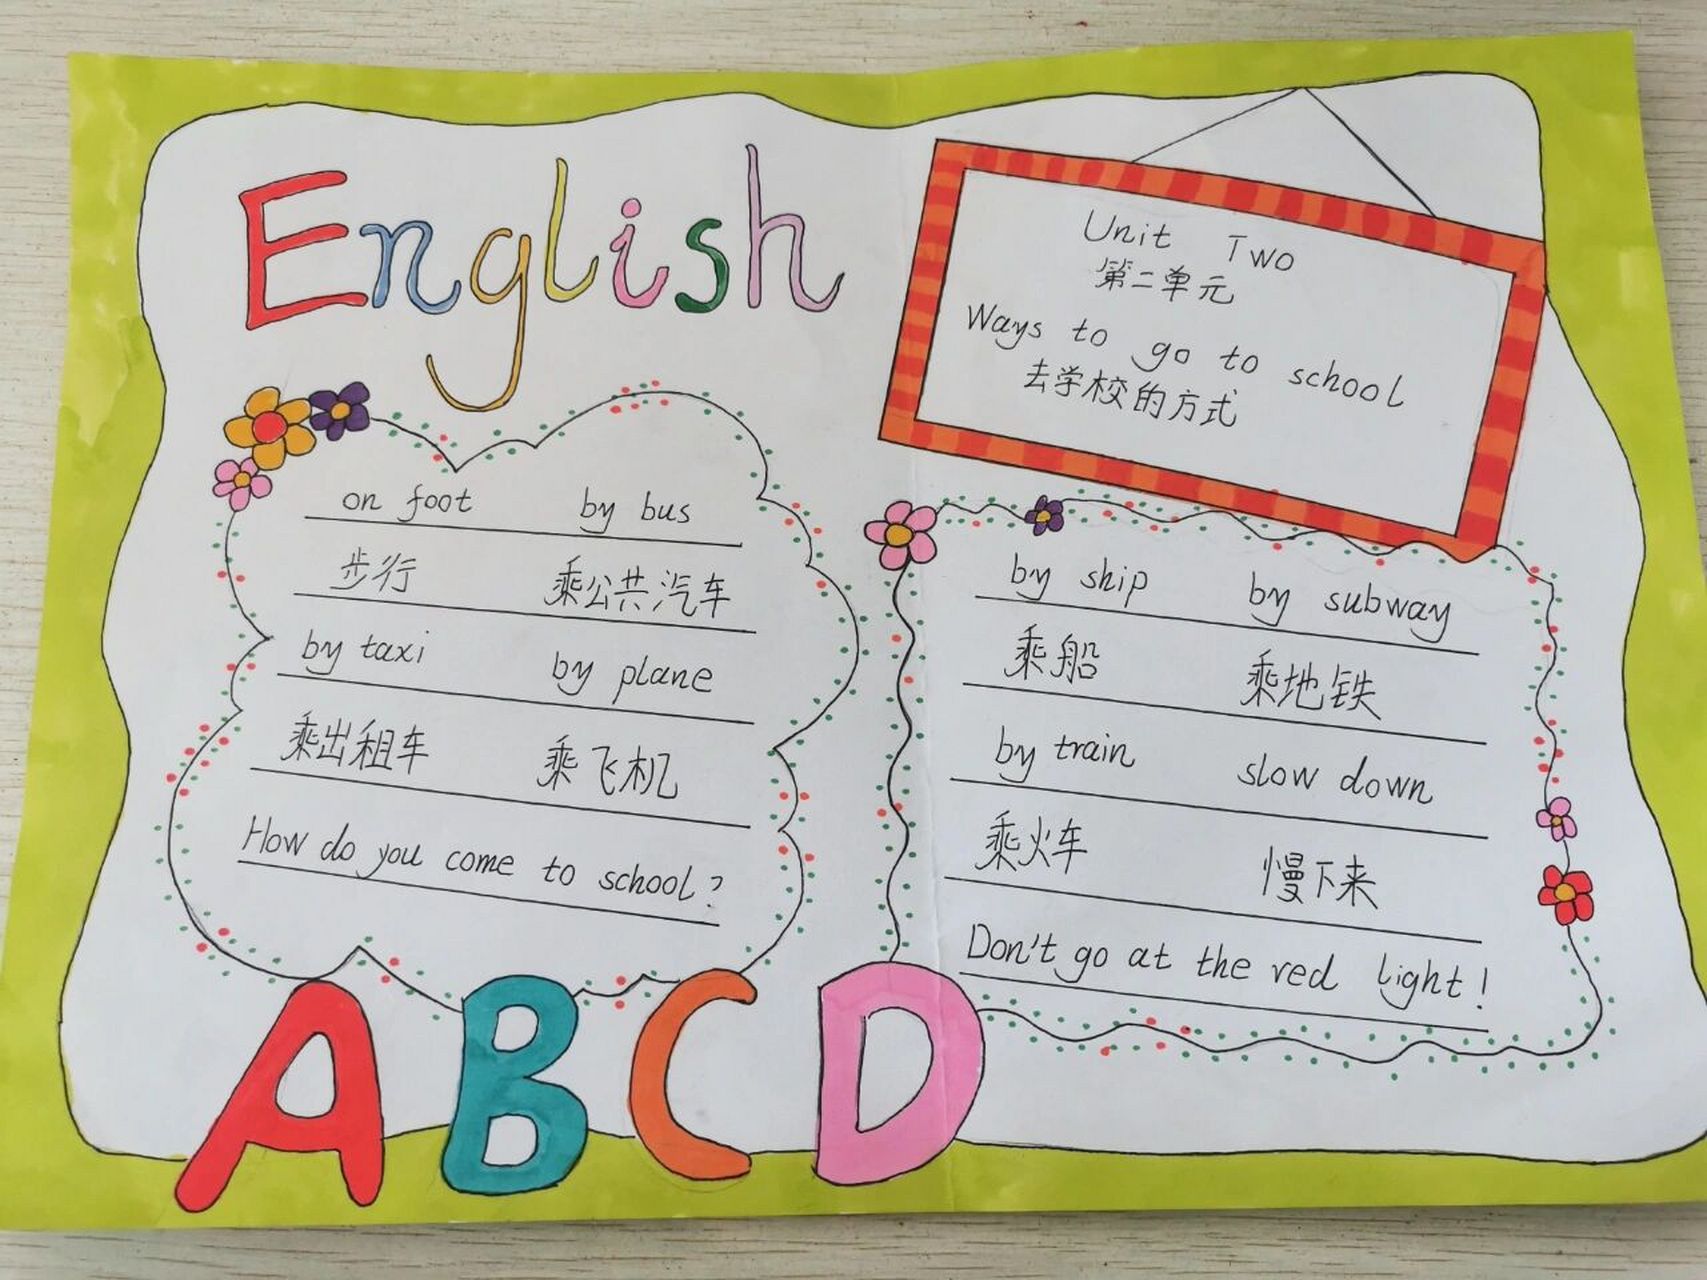 English
Unit Two
第二单元
Ways to go to school
去学校的方式
on foot by bus
步行 乘公共汽车
by taxi by plane
乘出租车 乘飞机
How do you come to school?
by ship by subway
乘船 乘地铁
by train slow down
乘火车 慢下来
Don't go at the red light!
ABCD